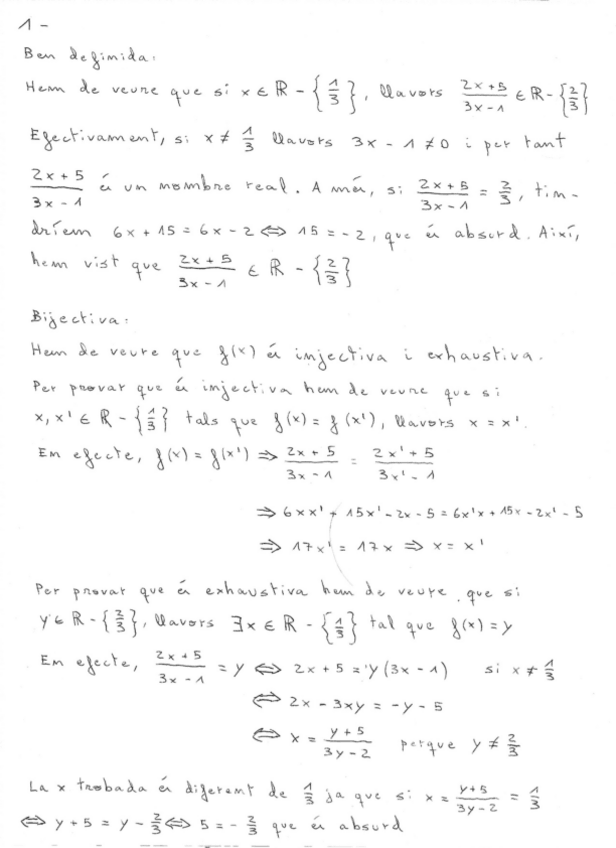 1 -
Ben definida:
Hem de veure que si x ∈ ℝ - {1/3}, llavors (2x+5)/(3x-1) ∈ ℝ - {2/3}
Efectivament, si x ≠ 1/3 llavors 3x - 1 ≠ 0 i per tant
(2x+5)/(3x-1) és un nombre real. A més, si (2x+5)/(3x-1) = 2/3, tin-
dríem 6x + 15 = 6x - 2 ⇔ 15 = -2, que és absurd. Així,
hem vist que (2x+5)/(3x-1) ∈ ℝ - {2/3}
Bijectiva:
Hem de veure que f(x) és injectiva i exhaustiva.
Per provar que és injectiva hem de veure que si
x, x' ∈ ℝ - {1/3} tals que f(x) = f(x'), llavors x = x'.
En efecte, f(x) = f(x') ⇒ (2x+5)/(3x-1) = (2x'+5)/(3x'-1)
⇒ 6xx' + 15x' - 2x - 5 = 6x'x + 15x - 2x' - 5
⇒ 17x' = 17x ⇒ x = x'
Per provar que és exhaustiva hem de veure que si
y ∈ ℝ - {2/3}, llavors ∃x ∈ ℝ - {1/3} tal que f(x) = y
En efecte, (2x+5)/(3x-1) = y ⇔ 2x + 5 = y(3x - 1) si x ≠ 1/3
⇔ 2x - 3xy = -y - 5
⇔ x = (y+5)/(3y-2) perque y ≠ 2/3
La x trobada és diferent de 1/3 ja que si x = (y+5)/(3y-2) = 1/3
⇔ y + 5 = y - 2/3 ⇔ 5 = -2/3 que és absurd